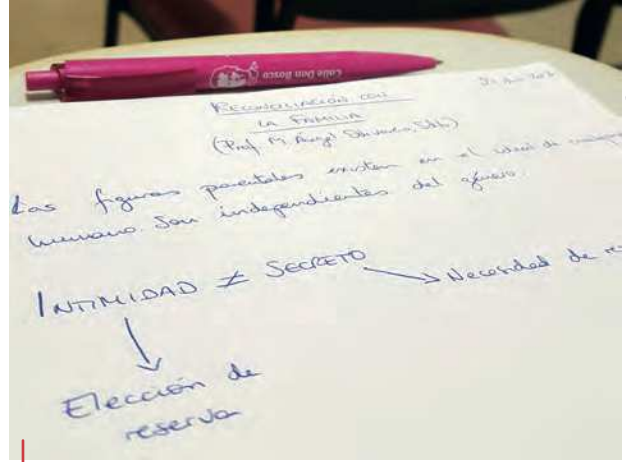 Calle Don Bosco
RECONCILIACIÓN CON
LA FAMILIA
(Prof. M. Ángel
Las figuras parentales existen en el ideal de
humano. Son independientes del género.
INTIMIDAD ≠ SECRETO
Necesidad de
Elección de
reserva